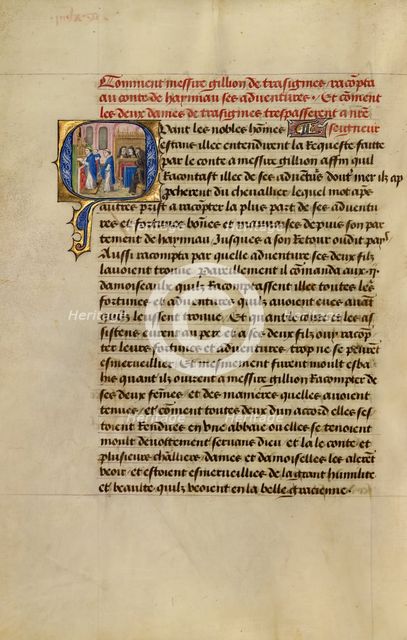 Comment messire gillion de trasignies racompta
au conte de haynnau ses adventures . Et coment
les deux dames de trasignies trespasserent a nre
Quant les nobles hommes seigneur
estans illec entendirent la Requeste faitte
par le conte a messire gillion affin quil
Racontast illec de ses adventures dont mer il ap
pcherent du chevallier lequel mot apres
autres prist a racopter la plus part de ses adventu
res et fortunes bones et mauvaises depuis son par
tement de haynnau Jusques a son Retour oudit pays
Aussi racopta par quelle adventure ses deux filz
lavoient trouve Pareillement il comanda aux ij
damoiseaulx quilz Racomptassent illec toutes les
fortunes et adventures quilz avoient eues avant
quilz leussent trouve / Et quant le conte et les as
sistens eurent au pere et a ses deux filz ouy racop
ter leurs fortunes et adventures trop ne se peurent
esmerveillier Et mesmement furent moult esba
his quant ilz ouirent a messire gillion Racompter de
ses deux femes et des manieres quelles avoient
tenues et coment toutes deux dun acord elles ses
toient Rendues en une abbaie ou elles se tenoient
moult devottement servans dieu et la le conte et
plusieurs chlliers dames et damoiselles les alerent
veoir et estoient esmerveilliez de la grant humilite
et beaulte quilz veoient en la belle gracienne .
Heritage
Heritage
Heritage